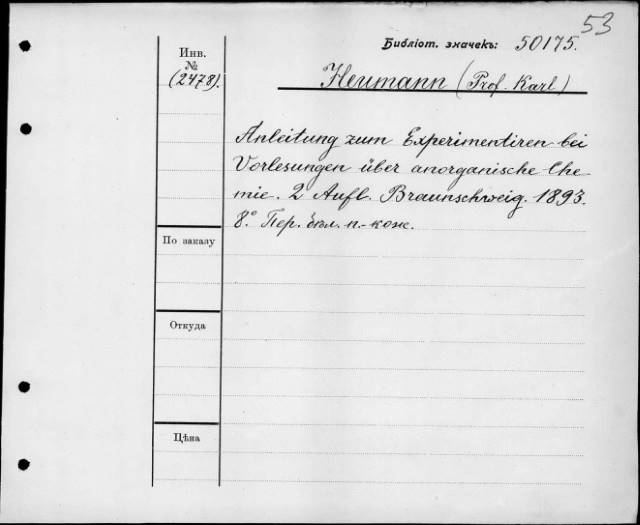 53
Библіот. значекъ: 50175.
Инв.
№
(2478).
Heumann (Prof. Karl)
Anleitung zum Experimentiren bei
Vorlesungen über anorganische Che-
mie. 2 Aufl. Braunschweig. 1893.
8.° Пер. бѣл. п.-кож.
По заказу
Откуда
Цѣна